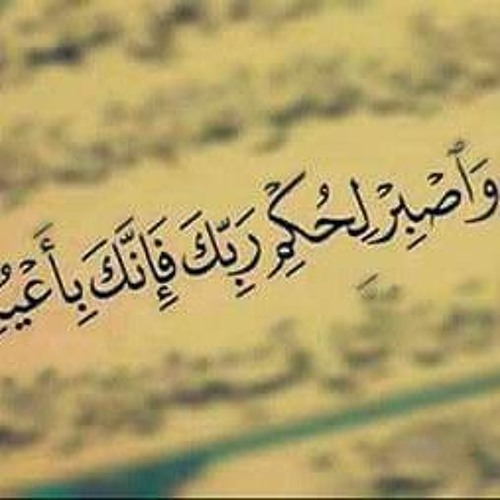 وَٱصْبِرْ لِحُكْمِ رَبِّكَ فَإِنَّكَ بِأَعْيُ